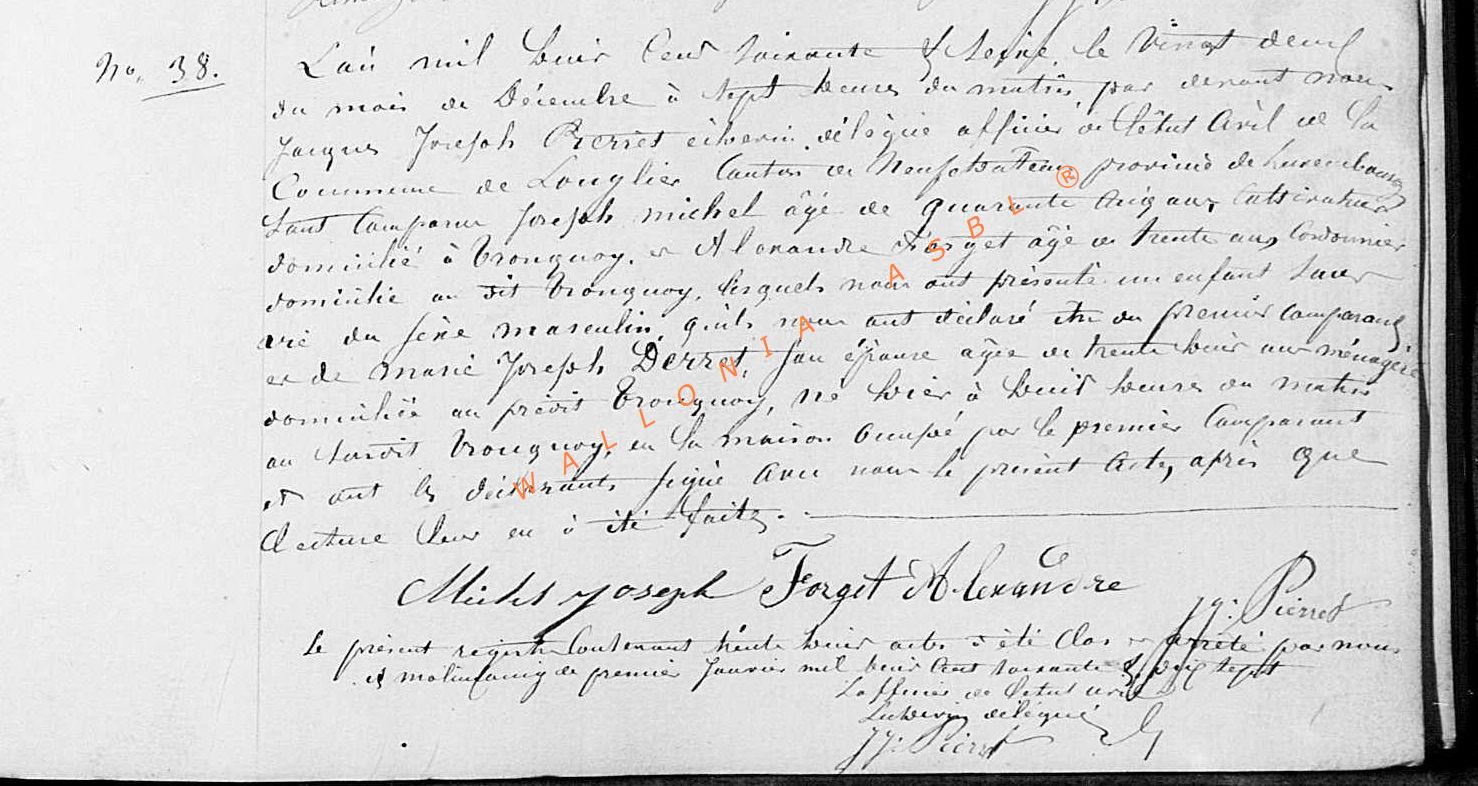 No. 38.
L'an mil huit Cent soixante & seize, le vingt deux
du mois de Décembre à sept heures du matin, par devant nous
Jacques Joseph Pierret échevin délégué officier de l'état Civil de la
Commune de Longlier Canton de Neufchateau province de Luxembourg
sont Comparu Joseph michel âgé de quarante Cinq ans, Cultivateur
domicilié à Tronquoy, et Alexandre Forget âgé de trente ans Cordonnier
domicilié au dit Tronquoy, lesquels nous ont présenté un enfant sans
vie du sèxe masculin, qu'ils nous ont déclaré être du premier Comparant
et de marie Joseph Derret, son épouse agée de trente huit ans ménagère
domiciliée au prédit Tronquoy, né hier à huit heures du matin
au susdit Tronquoy, en la maison occupée par le premier Comparant
et ont les déclarants signé avec nous le présent acte, après que
lecture leur en à été faite.
Michel Joseph Forget Alexandre
JJ. Pierret
Le présent registre Contenant trente huit actes à été Clos et arrêté par nous
premier Janvier mil huit Cent soixante & dix sept
L'officier de l'état civil
délégué
JJ. Pierret
WALLONIA ASBL ®